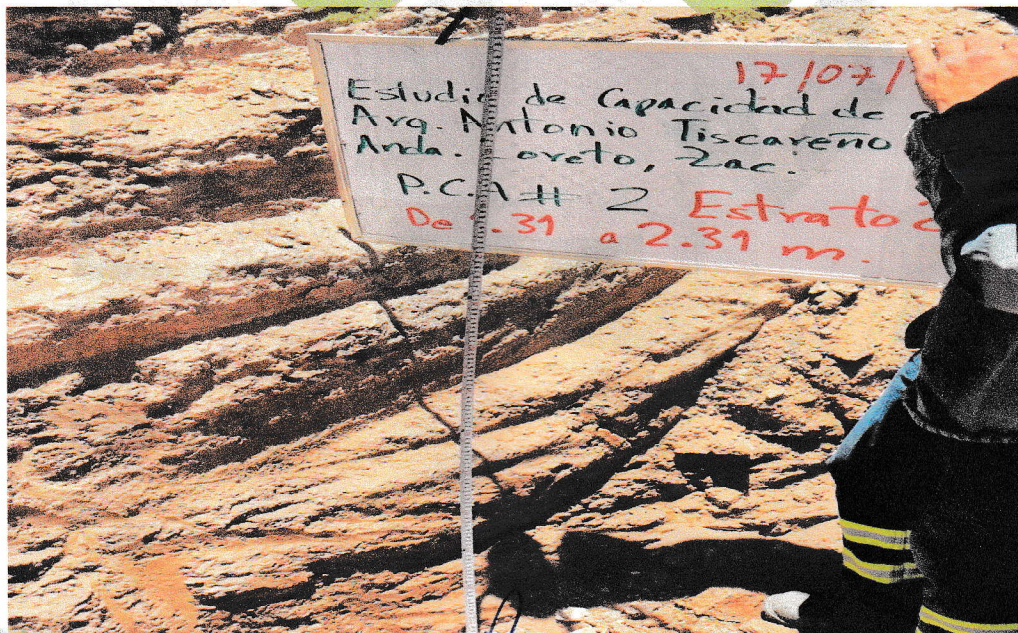 17/07/
Estudio de Capacidad de
Arq. Antonio Tiscareño
Anda. Loreto, Zac.
P.C.A # 2 Estrato 2
De 1.31 a 2.31 m.